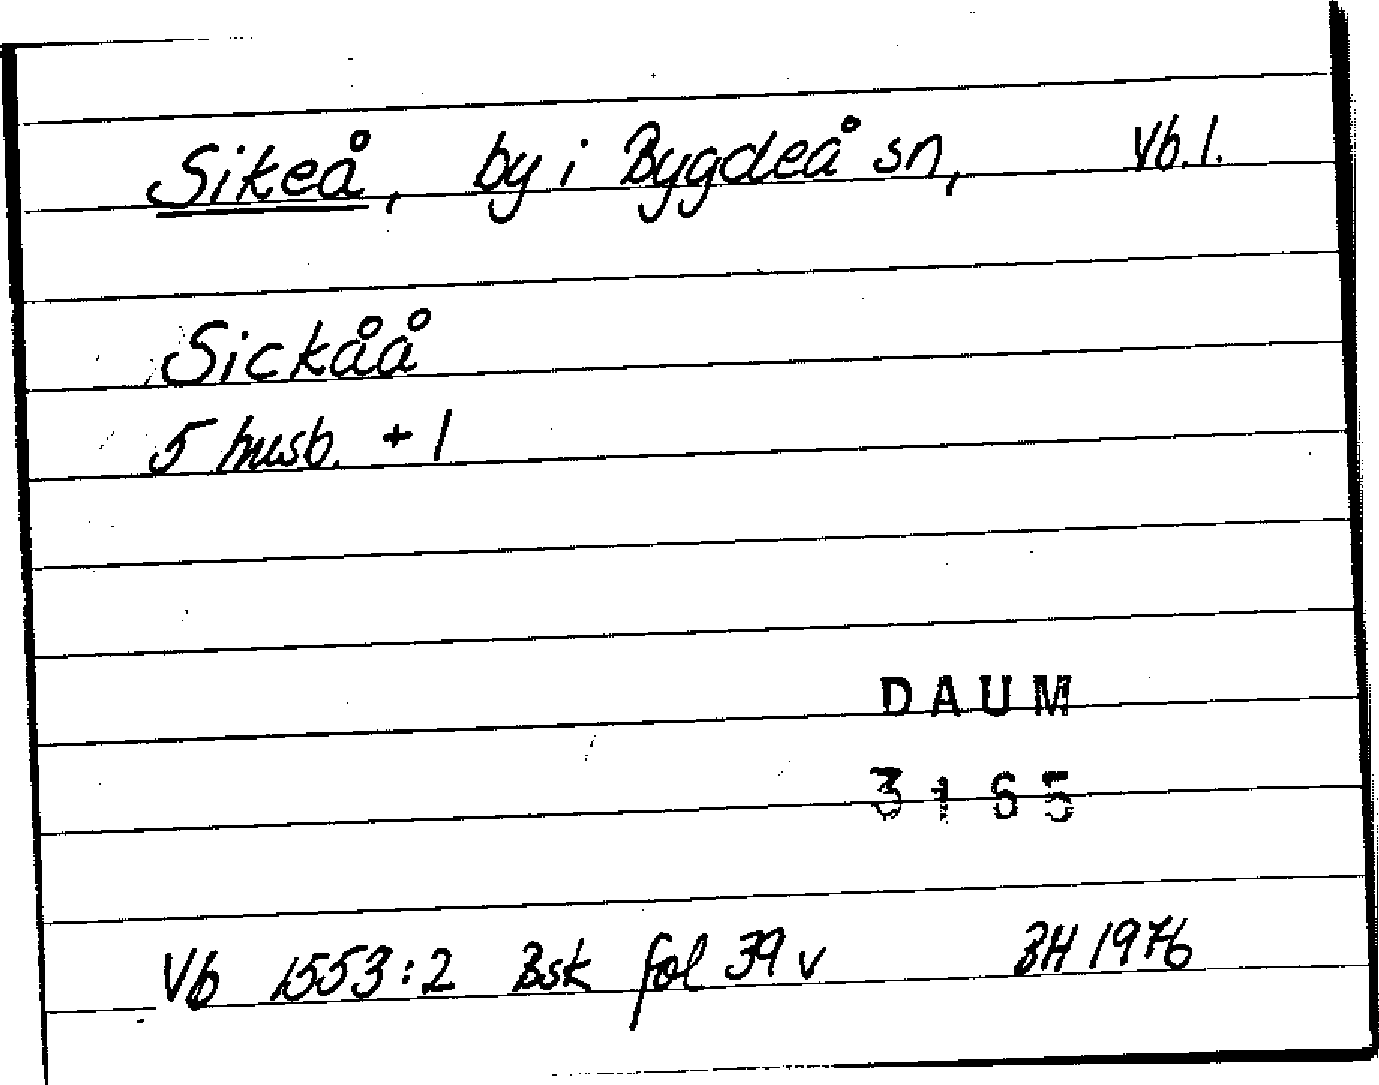 Sikeå, by i Bygdeå sn, Vb. l.
Sickåå
5 husb. + 1
DAUM
3165
Vb 1553:2 Bsk fol 39 v BH 1976